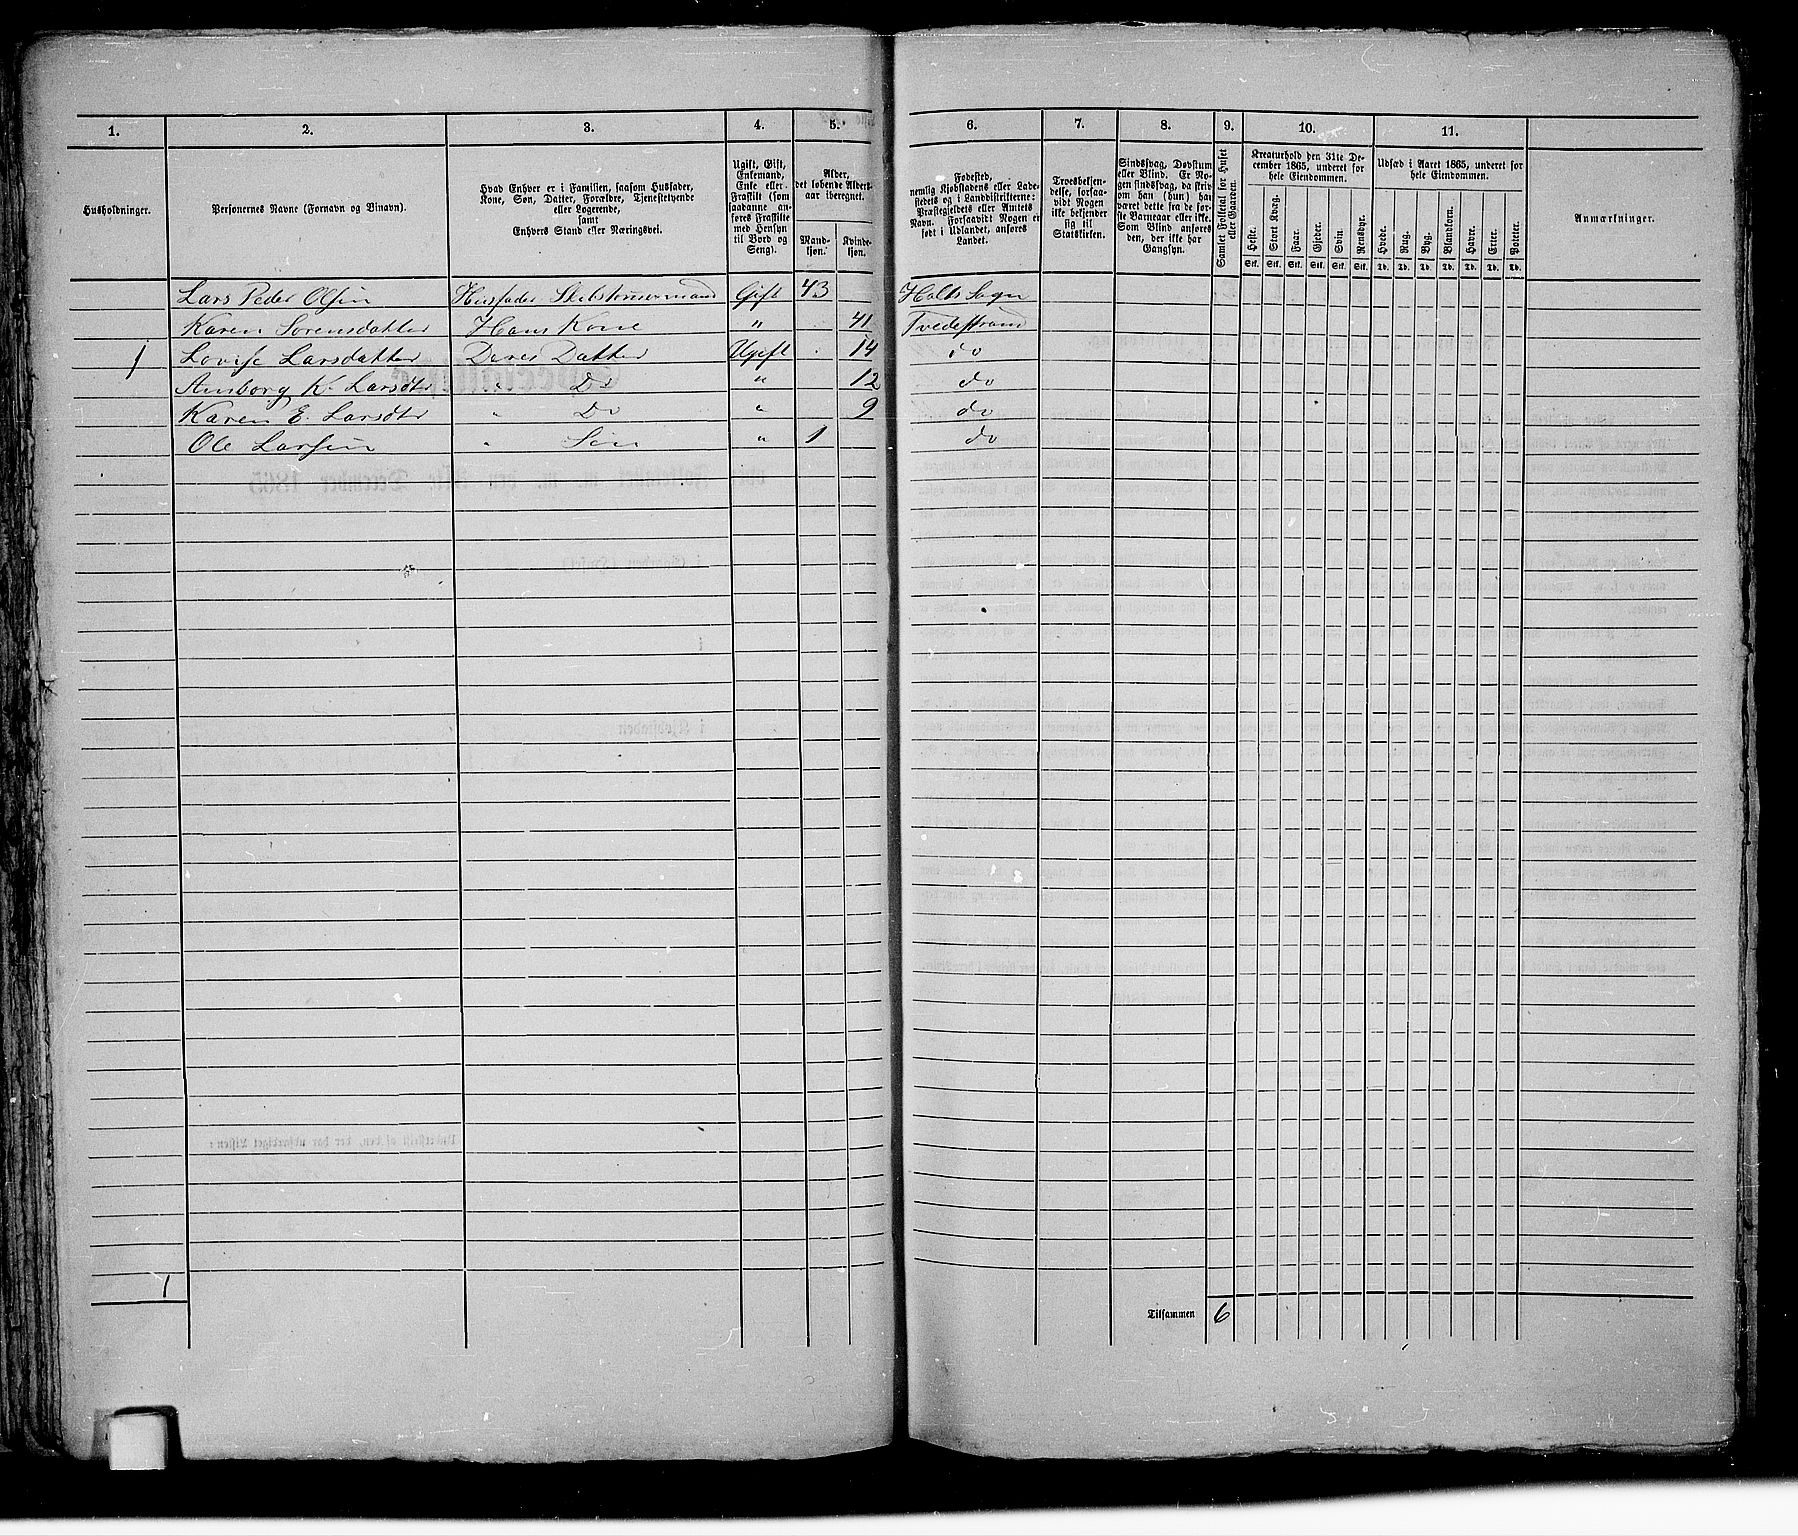 1.
2.
3.
4.
5.
6.
7.
8.
9.
10.
11.
Husholdninger.
Personernes Navne (Fornavn og Vinavn).
Hvad Enhver er i Familien, saasom Husfader,
Kone, Søn, Datter, Forældre, Tjenestetyende
eller Logerende,
samt
Enhvers Stand eller Næringsvei.
Ugift, Gift,
Enkemand,
Enke eller
Fraskilt (som
saadanne an-
føres Fraskilte
med Hensyn
til Bord og
Seng).
Alder,
det løbende Alders-
aar iberegnet.
Mand-
kjøn.
Kvinde-
kjøn.
Fødested,
nemlig Kjøbstadens eller Lade-
stedets og i Landdistrikterne:
Præstegjeldets eller Amtets
Navn. Forsaavidt Nogen er
født i Udlandet, anføres
Landet.
Troesbekjen-
delse, forsaa-
vidt Nogen
ikke bekjender
sig til
Statskirken.
Sindssvag, Døvstum
eller Blind. Er No-
gen sindssvag, da skriv
om han (hun) har
været dette fra de før-
ste Barneaar eller ikke.
Som Blind anføres
den, der ikke har
Gangsyn.
Samlet Folketal for Huset
eller Gaarden.
Kreaturhold den 31te De-
cember 1865, underet for
hele Eiendommen.
Heste. Stort Kvæg. Faar. Gjeder. Svin. Rensdyr.
Stk. Stk. Stk. Stk. Stk. Stk.
Udsæd i Aaret 1865, underet for
hele Eiendommen.
Hvede. Rug. Byg. Blandkorn. Havre. Erter. Poteter.
Td. Td. Td. Td. Td. Td. Td.
Anmærkninger.
Lars Peder Olsen Husfader Gift 43 Holts Sogn
Karen Sørensdatter Hans Kone " 41 Tvedestrand
1 Lovise Larsdatter Deres Datter Ugift 14 do
Amborg K. Larsdtr " Do " 12 do
Karen E. Larsdtr " Do " 9 do
Ole Larsen " Søn " 1 do
1
Tilsammen 6